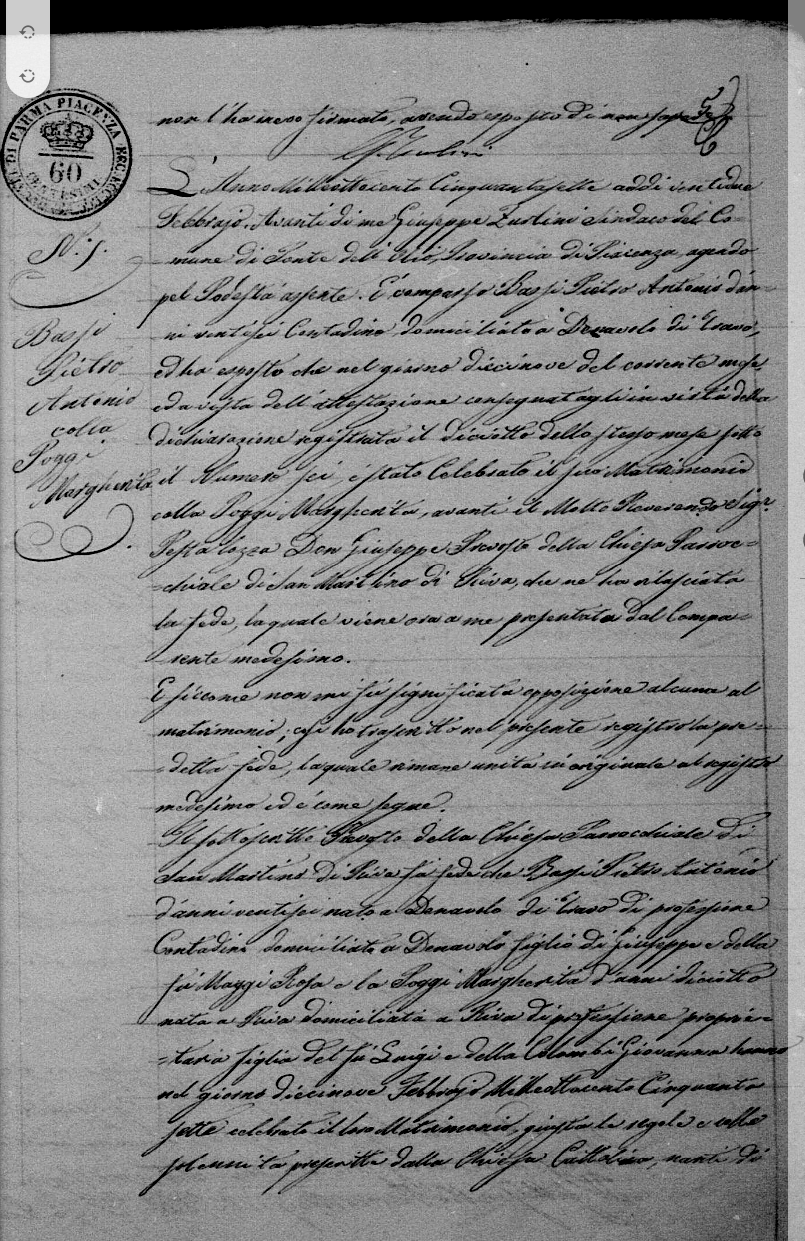 DI PARMA PIACENZA ECC. ECC.
60
CENTESIMI
non l'ha meco firmato, avendo esposto di non sapere
N. 5.
Bassi
Pietro
Antonio
colla
Poggi
Margherita
L'Anno Milleottocento Cinquantasette addì ventidue
Febbrajo. Avanti di me Giuseppe Zurlini Sindaco del Co=
=mune di Ponte dell'Olio, Provincia di Piacenza, agendo
pel Podestà assente. È comparso Bassi Pietro Antonio d'an=
ni ventisei Contadino domiciliato a Denavolo di Travo,
ed ha esposto che nel giorno diecinove del corrente mese,
ed a vista dell'attestazione consegnatagli in virtù della
dichiarazione registrata il diciotto dello stesso mese sotto
il Numero sei, è stato Celebrato il suo Matrimonio
colla Poggi Margherita, avanti il Molto Reverendo Sigr.
Pestalozza Don Giuseppe Prevosto della Chiesa Parroc=
=chiale di San Martino di Riva, che ne ha rilasciata
la fede, la quale viene ora a me presentata dal Compa=
rente medesimo.
E siccome non mi fu significata opposizione alcuna al
matrimonio; così ho trascritto nel presente registro la pre=
=detta fede, la quale rimane unita in originale al registro
medesimo ed è come segue.
Il sottoscritto Prevosto della Chiesa Parrocchiale di
San Martino di Riva fa fede che Bassi Pietro Antonio
d'anni ventisei nato a Denavolo di Travo di professione
Contadino domiciliato a Denavolo figlio di Giuseppe e della
fu Maggi Rosa e la Poggi Margherita d'anni diciotto
nata a Riva domiciliata a Riva di professione proprie=
=taria figlia del fu Luigi e della Colombi Giovanna hanno
nel giorno diecinove Febbrajo Milleottocento Cinquanta
sette celebrato il loro Matrimonio, giusta le regole e colle
solennità prescritte dalla Chiesa Cattolica, nanti di